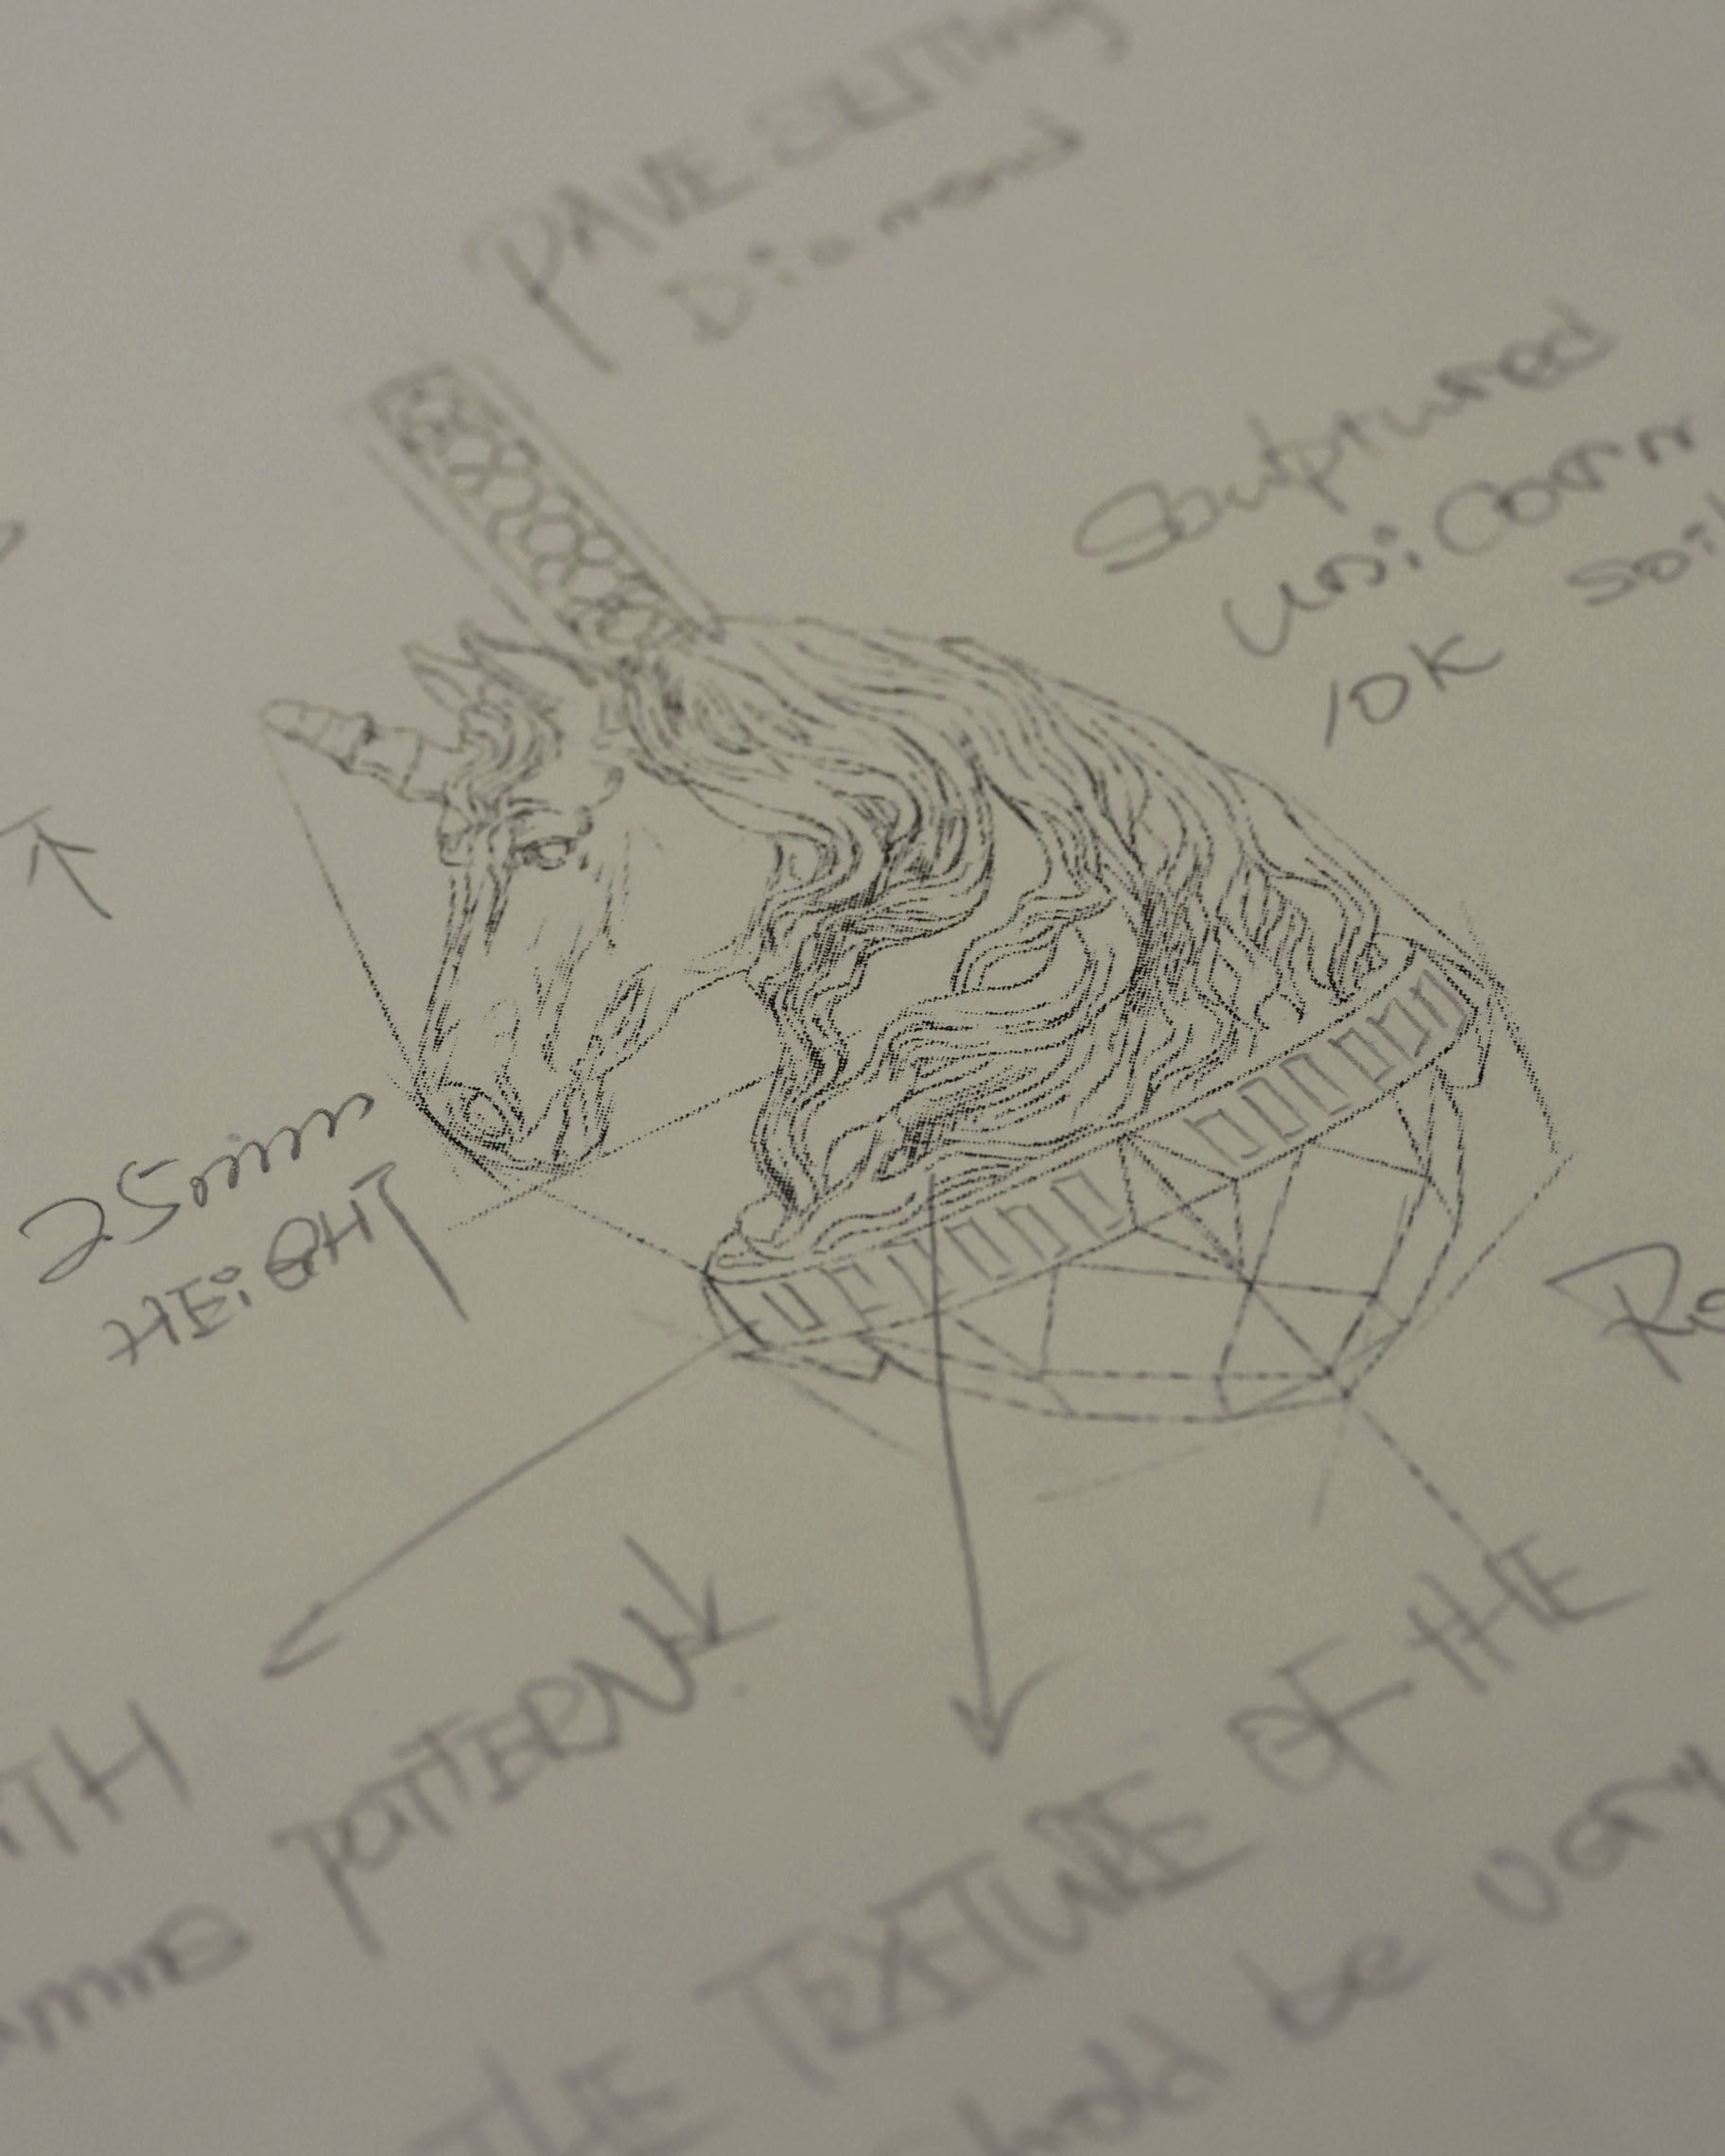 PAVE SETTING
Diamond
Sculptured
uniCorn
10K
25mm
HEIGHT
POTTERN
THE TEXETURE OF THE
be very